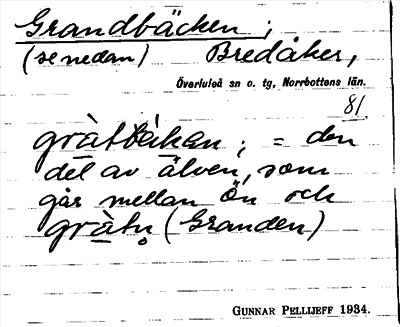 Grandbäcken ;
(se nedan) Bredåker,
Överluleå sn o. tg, Norrbottens län.
81.
gràtbäkan ; = den
del av älven, som
går mellan Ön och
gràtn̥ (Granden)
GUNNAR PELLIJEFF 1934.